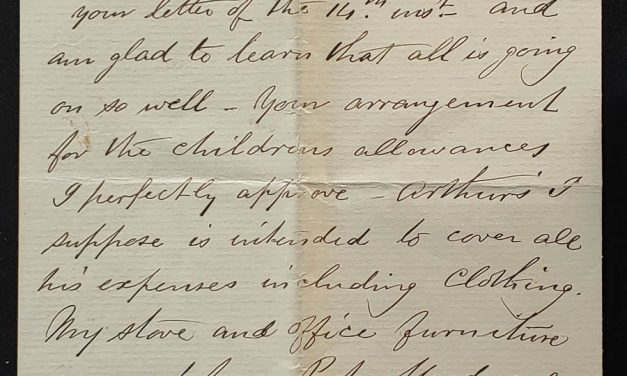 your letter of the 14th inst- and
am glad to learn that all is going
on so well - Your arrangement
for the childrens allowances
I perfectly approve - Arthur's I
suppose is intended to cover all
his expenses including Clothing.
My stove and office furniture